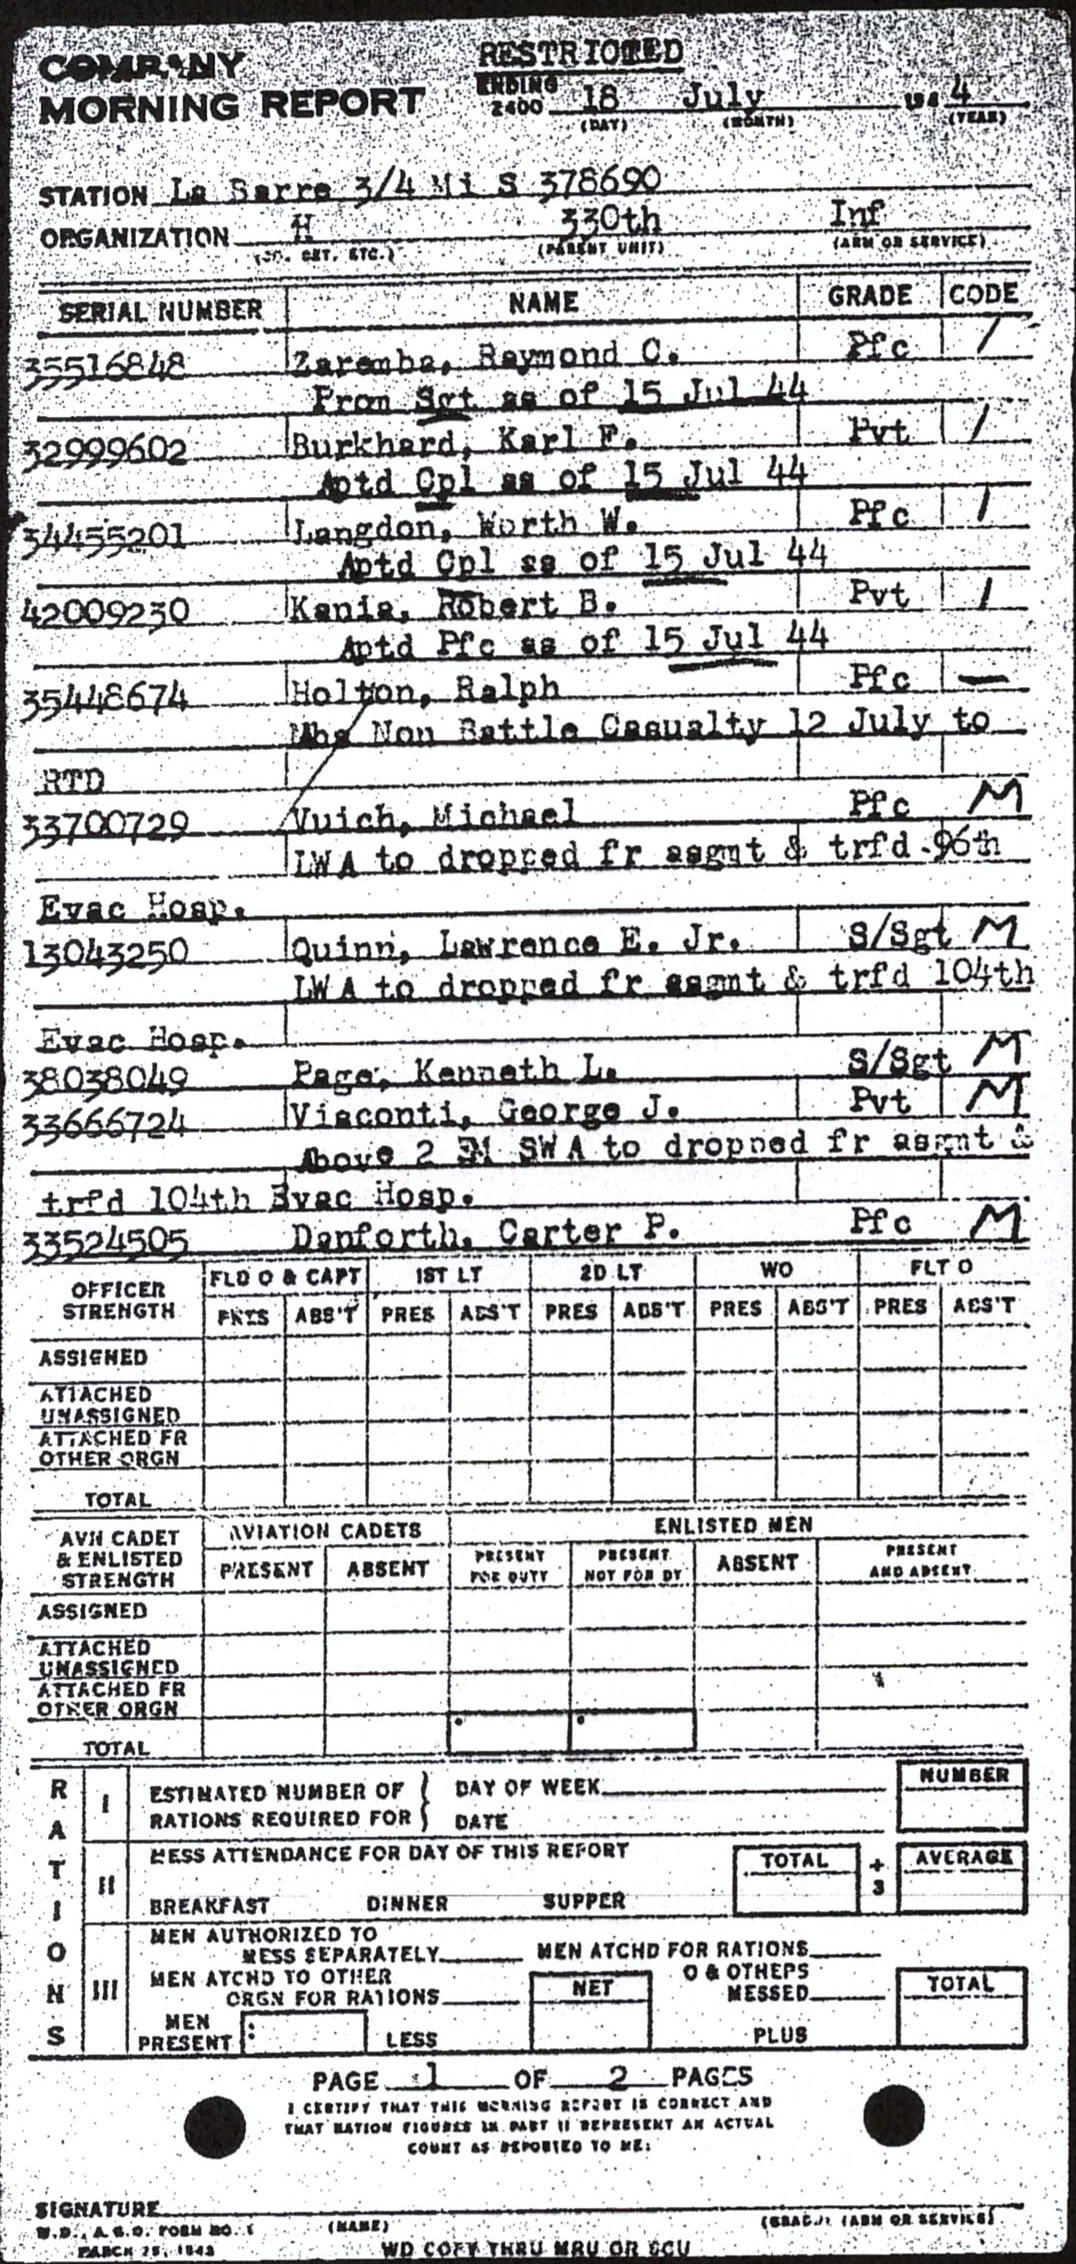 COMPANY RESTRICTED
MORNING REPORT ENDING 2400 18 July 1944
(DAY) (MONTH) (YEAR)
STATION La Barre 3/4 Mi S 378690
ORGANIZATION H 330th Inf
(CO. DET. ETC.) (PARENT UNIT) (ARM OR SERVICE)
SERIAL NUMBER NAME GRADE CODE
35516848 Zaremba, Raymond C. Pfc /
Prom Sgt as of 15 Jul 44
32999602 Burkhard, Karl F. Pvt /
Aptd Cpl as of 15 Jul 44
34455201 Langdon, Worth W. Pfc /
Aptd Cpl as of 15 Jul 44
42009230 Kania, Robert B. Pvt /
Aptd Pfc as of 15 Jul 44
35448674 Holton, Ralph Pfc —
Non Battle Casualty 12 July to
RTD
33700729 Vuich, Michael Pfc M
LWA to dropped fr asgmt & trfd 96th
Evac Hosp.
13043250 Quinn, Lawrence E. Jr. S/Sgt M
LWA to dropped fr asgmt & trfd 104th
Evac Hosp.
38038049 Page, Kenneth L. S/Sgt M
33666724 Visconti, George J. Pvt M
Above 2 EM SWA to dropped fr asgmt &
trfd 104th Evac Hosp.
33524505 Danforth, Carter P. Pfc M
OFFICER STRENGTH FLD O & CAPT 1ST LT 2D LT WO FLT O
PRES ABS'T PRES ABS'T PRES ABS'T PRES ABS'T PRES ABS'T
ASSIGNED
ATTACHED UNASSIGNED
ATTACHED FR OTHER ORGN
TOTAL
AVN CADET & ENLISTED STRENGTH AVIATION CADETS ENLISTED MEN
PRESENT ABSENT PRESENT FOR DUTY PRESENT NOT FOR DY ABSENT PRESENT AND ABSENT
ASSIGNED
ATTACHED UNASSIGNED
ATTACHED FR OTHER ORGN
TOTAL
RATIONS
I ESTIMATED NUMBER OF DAY OF WEEK NUMBER
RATIONS REQUIRED FOR DATE
II MESS ATTENDANCE FOR DAY OF THIS REPORT TOTAL ÷ 3 AVERAGE
BREAKFAST DINNER SUPPER
III MEN AUTHORIZED TO
MESS SEPARATELY MEN ATCHD FOR RATIONS
MEN ATCHD TO OTHER NET O & OTHERS TOTAL
ORGN FOR RATIONS MESSED
MEN PRESENT LESS PLUS
PAGE 1 OF 2 PAGES
I CERTIFY THAT THIS MORNING REPORT IS CORRECT AND
THAT RATION FIGURES IN PART II REPRESENT AN ACTUAL
COUNT AS REPORTED TO ME:
SIGNATURE
W.D., A.G.O. FORM NO. 1 (NAME) (GRADE) (ARM OR SERVICE)
MARCH 25, 1943 WD COPY THRU MRU OR SCU